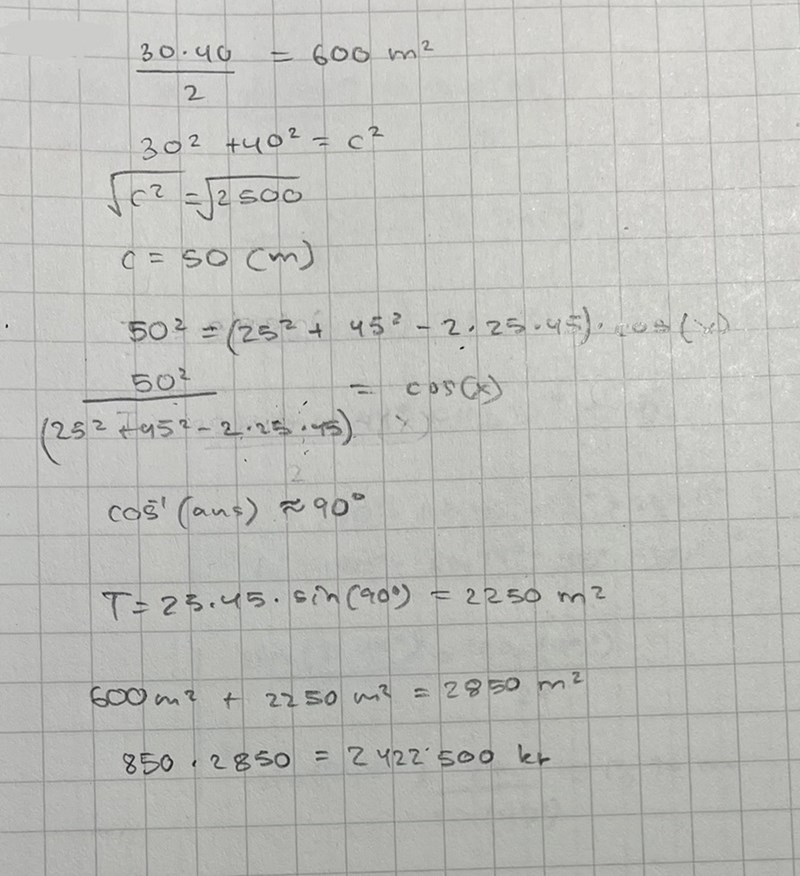 30·40 / 2 = 600 m²
30² + 40² = c²
√c² = √2500
c = 50 (m)
50² = (25² + 45² - 2·25·45)·cos(x)
50² / (25² + 45² - 2·25·45) = cos(x)
cos⁻¹(ans) ≈ 90°
T = 25·45·sin(90°) = 2250 m²
600 m² + 2250 m² = 2850 m²
850·2850 = 2 422 500 kr